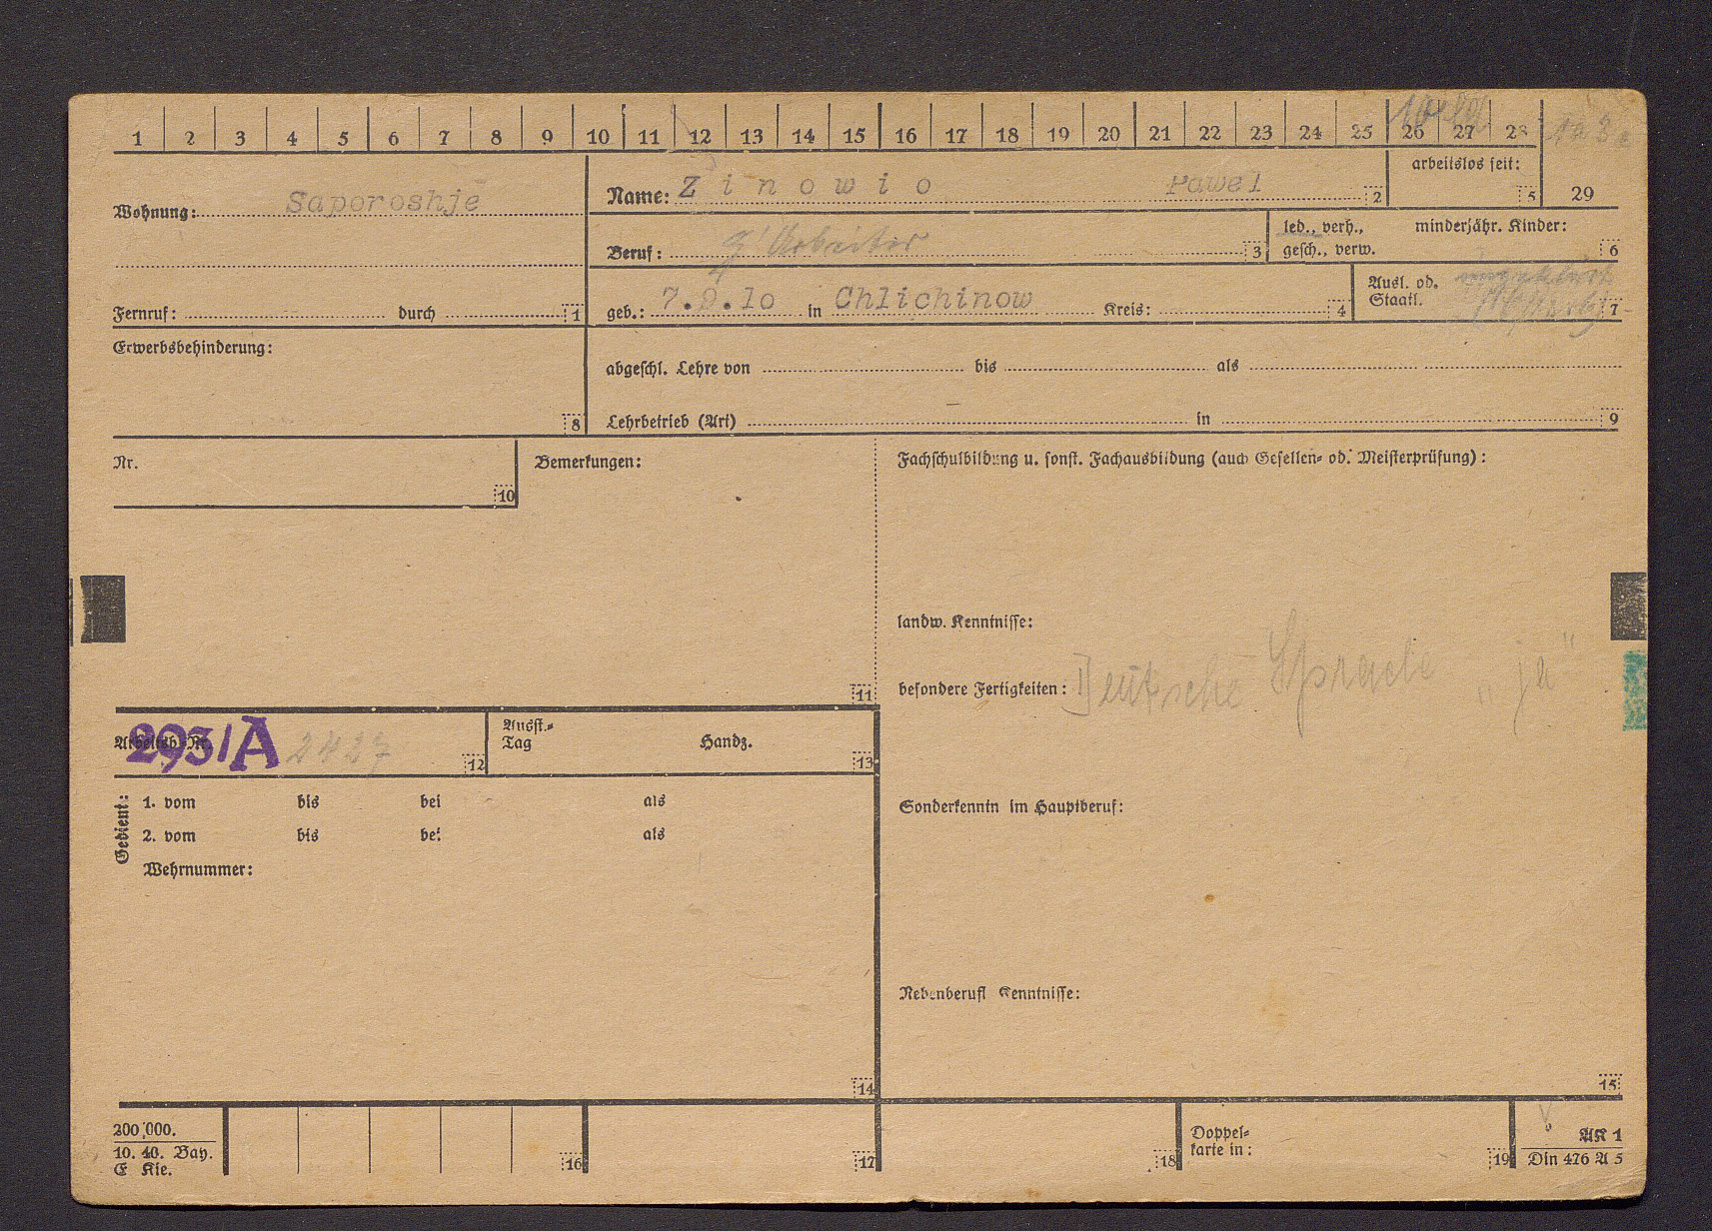 1 2 3 4 5 6 7 8 9 10 11 12 13 14 15 16 17 18 19 20 21 22 23 24 25 26 27 28
29
arbeitslos seit: 5
Wohnung: Saporoshje
Name: Zinowio Pawel 2
Beruf: Arbeiter 3
led., verh., minderjähr. Kinder:
gesch., verw. 6
Fernruf: durch 1
geb.: 7.9.10 in Chlichinow Kreis: 4
Ausl. od.
Staatl. 7
Erwerbsbehinderung:
8
abgeschl. Lehre von bis als
Lehrbetrieb (Art) in 9
Nr.
10
Bemerkungen:
11
Fachschulbildung u. sonst. Fachausbildung (auch Gesellen- od. Meisterprüfung):
landw. Kenntnisse:
besondere Fertigkeiten: Deutsche Sprache "ja"
Arbeitsb. Nr. 293/A 2427 12
Ausst.-
Tag Handz. 13
Gedient:
1. vom bis bei als
2. vom bis bei als
Wehrnummer:
14
Sonderkenntn im Hauptberuf:
Nebenberufl Kenntnisse:
15
200 000.
10. 40. Bay.
E Kie.
16
17
18
Doppel-
karte in: 19
AK 1
Din 476 A 5